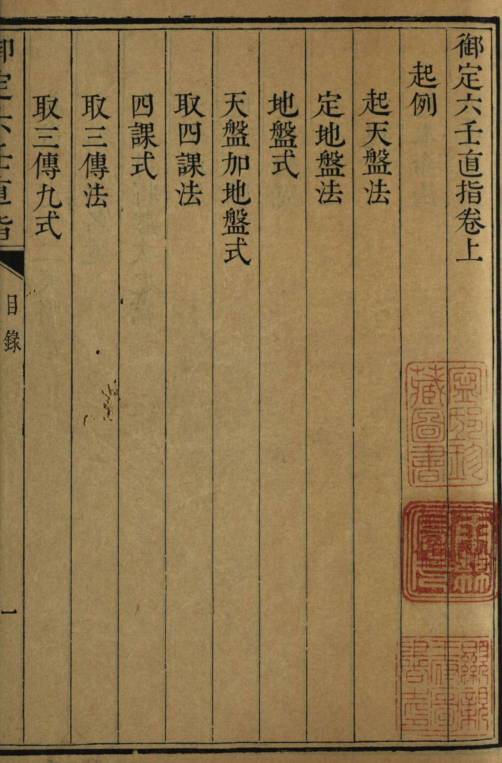 御定六壬直指卷上
起例
起天盤法
定地盤法
地盤式
天盤加地盤式
取四課法
四課式
取三傳法
取三傳九式
御定六壬直指
目錄
一
藏圖書